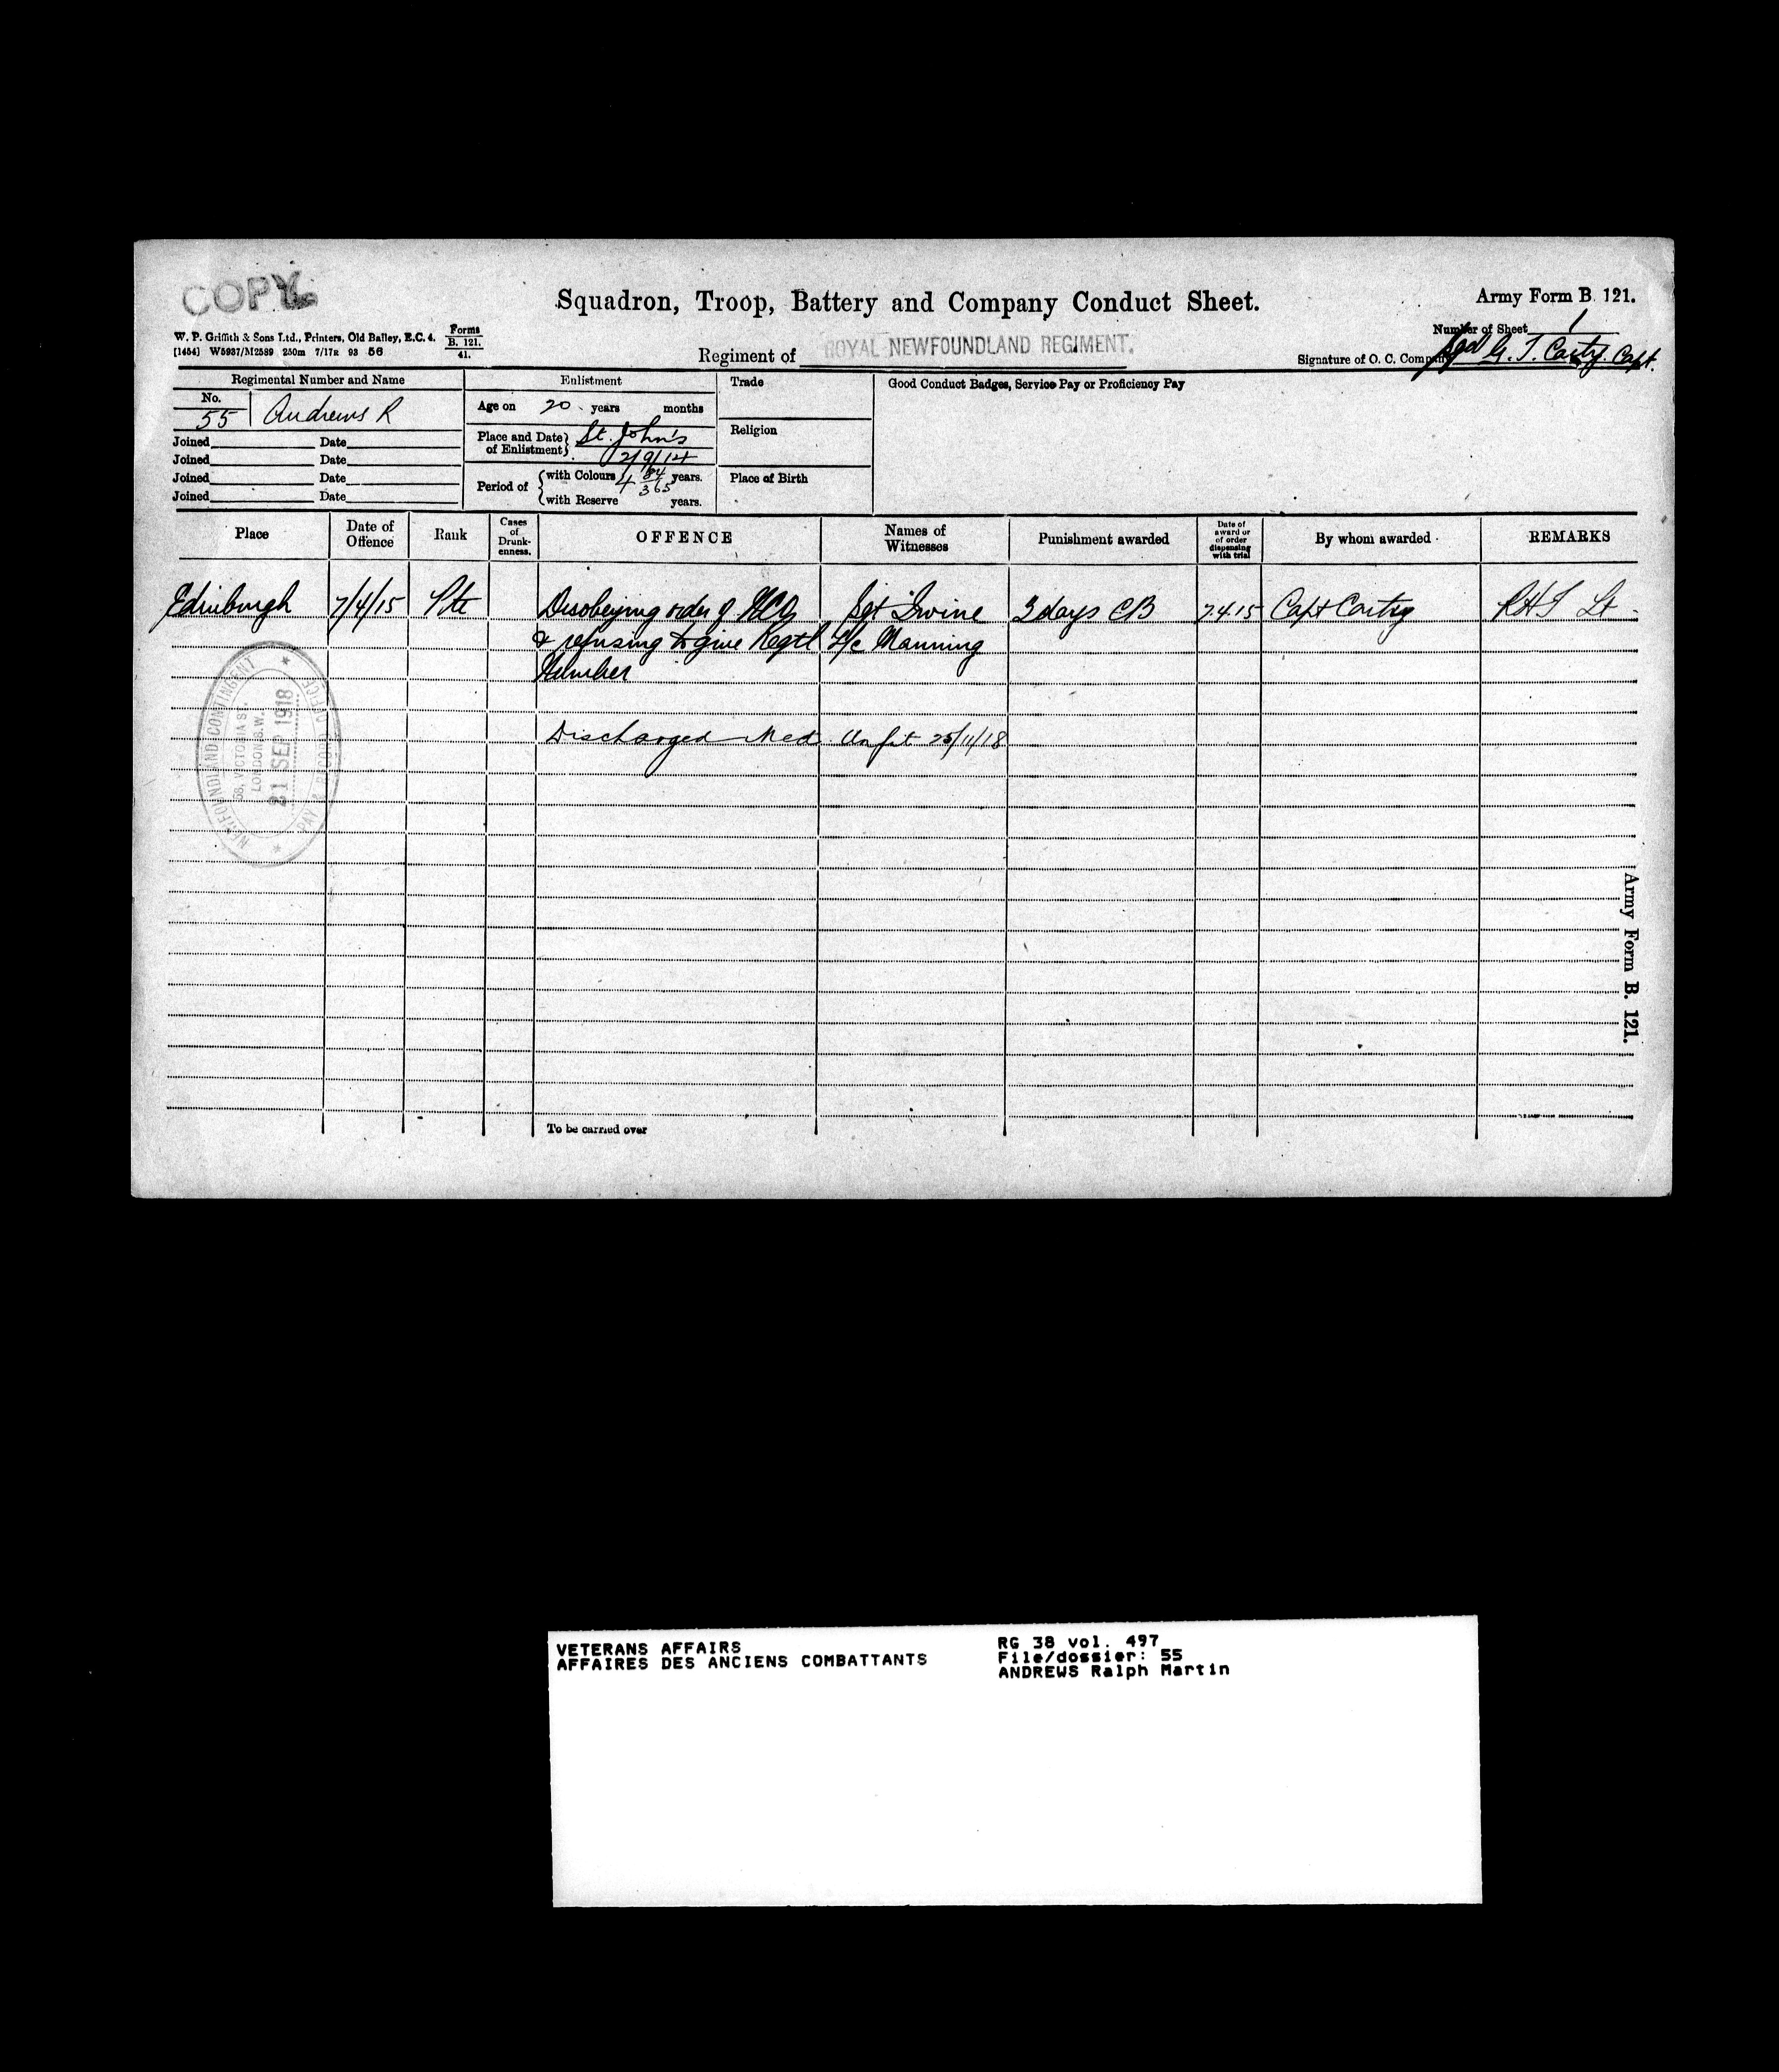 COPY
Squadron, Troop, Battery and Company Conduct Sheet.
Army Form B. 121.
W. P. Griffith & Sons Ltd., Printers, Old Bailey, E.C. 4.
[1454] W5937/M2589 250m 7/17R 93 56
Forms
B. 121.
41.
Number of Sheet 1
Regiment of ROYAL NEWFOUNDLAND REGIMENT.
Signature of O. C. Company Sgd G. J. Carty. Capt.
Regimental Number and Name
No.
55 Andrews R
Joined Date
Joined Date
Joined Date
Joined Date
Enlistment
Age on 20 years months
Place and Date of Enlistment St. John's
2/9/14
Period of with Colours 4 84/365 years.
with Reserve years.
Trade
Religion
Place of Birth
Good Conduct Badges, Service Pay or Proficiency Pay
Place
Date of Offence
Rank
Cases of Drunk-enness.
OFFENCE
Names of Witnesses
Punishment awarded
Date of award or of order dispensing with trial
By whom awarded
REMARKS
Edinburgh 7/4/15 Pte Disobeying order of NCO Sgt Irvine 3 days CB 7.4.15 Capt Carty Lt
& refusing to give Regtl L/c Manning
Number
Discharged Med. Unfit 25/11/18
NEWFOUNDLAND CONTINGENT
58, VICTORIA ST.
LONDON S.W.
21 SEP 1918
PAY & RECORD OFFICE
To be carried over
Army Form B. 121.
VETERANS AFFAIRS
AFFAIRES DES ANCIENS COMBATTANTS
RG 38 vol. 497
File/dossier: 55
ANDREWS Ralph Martin